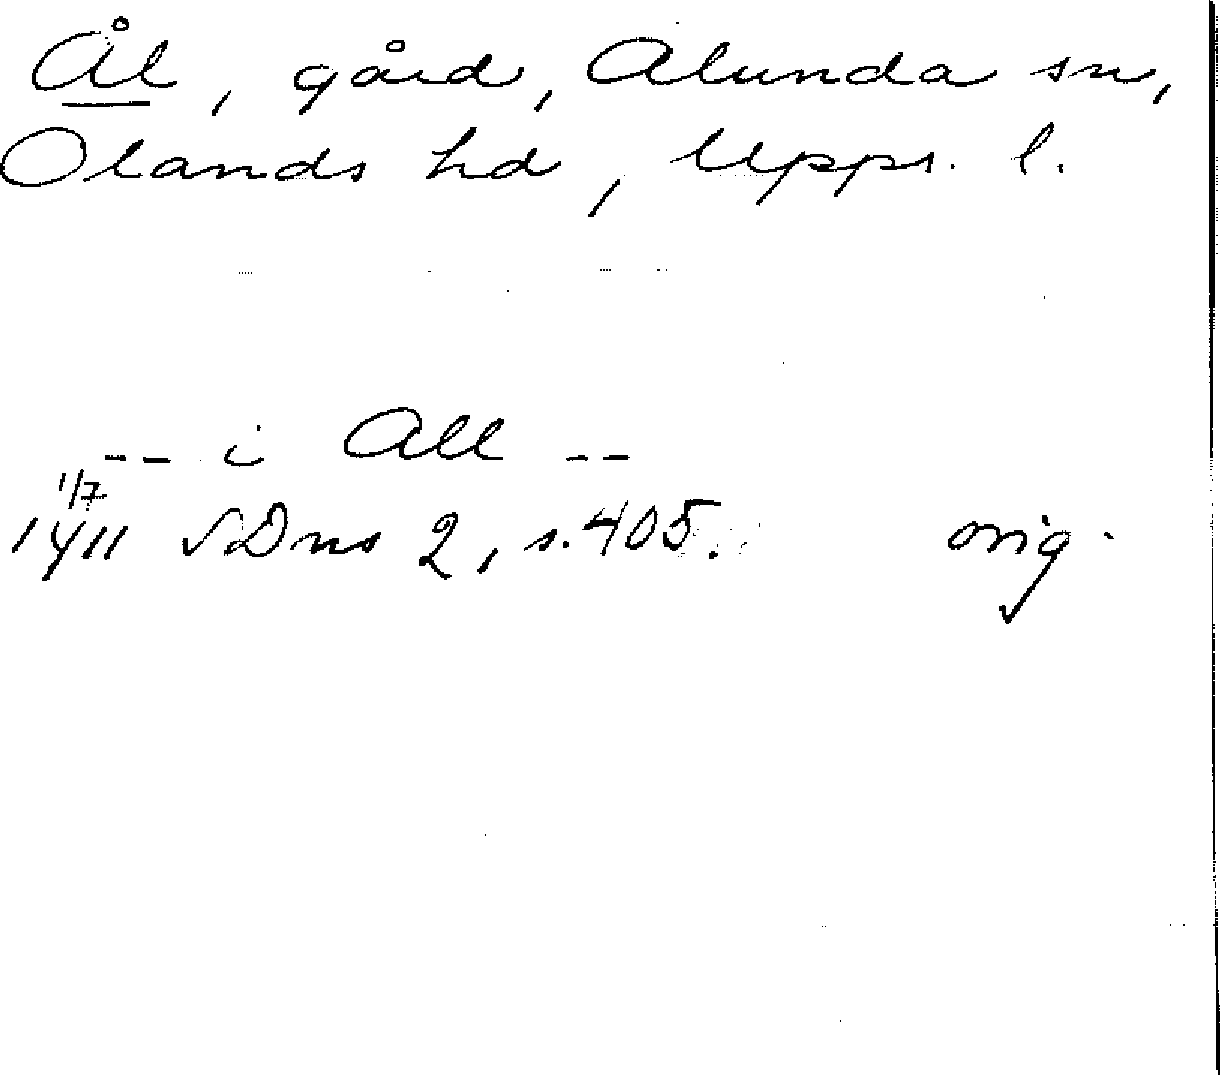 Ål, gård, Alunda sn,
Olands hd, Upps. l.
-- i All --
1/7
1411 SDns 2, s. 405. orig.